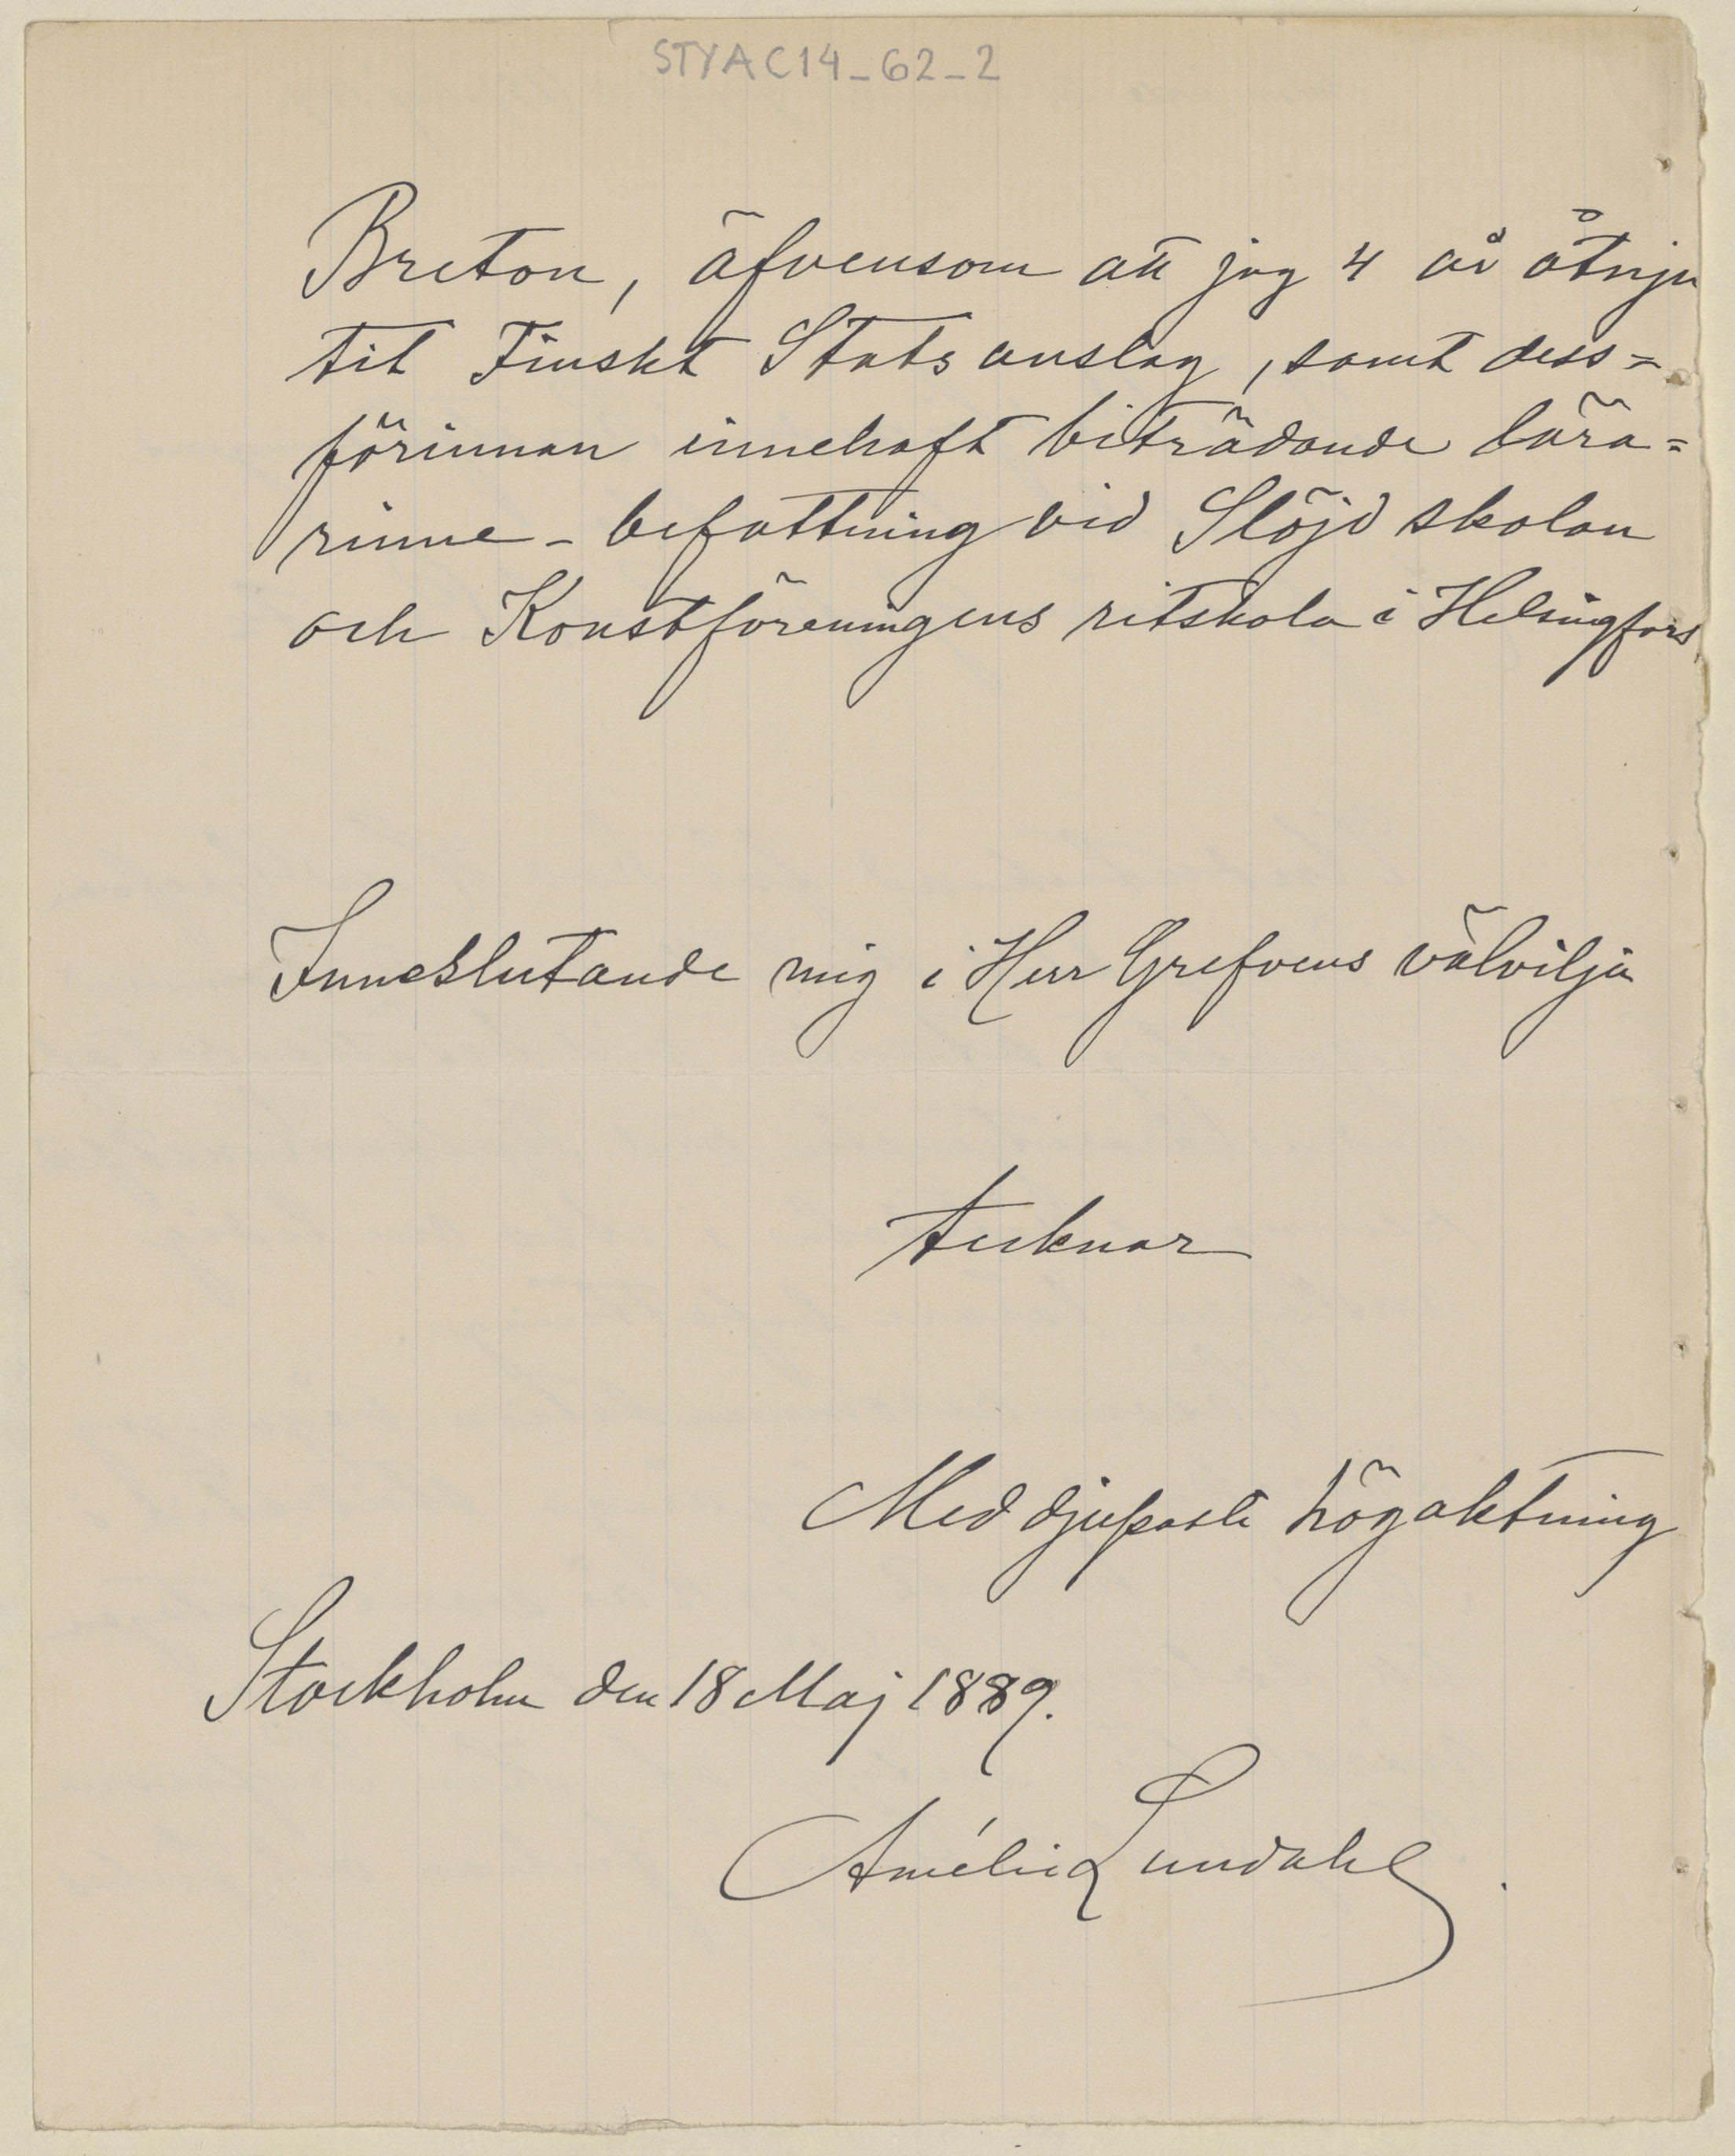 STYAC14_62_2
Breton, äfvensom att jag 4 år åtnju
tit Finskt Statsanslag, samt dess=
förinnan innehaft biträdande lära=
rinne-befattning vid Slöjdskolan
och Konstföreningens ritskola i Helsingfors,
Inneslutande mig i Herr Grefvens välvilja
tecknar
Med djupaste högaktning
Stockholm den 18 Maj 1889.
Amélie Lundahl.